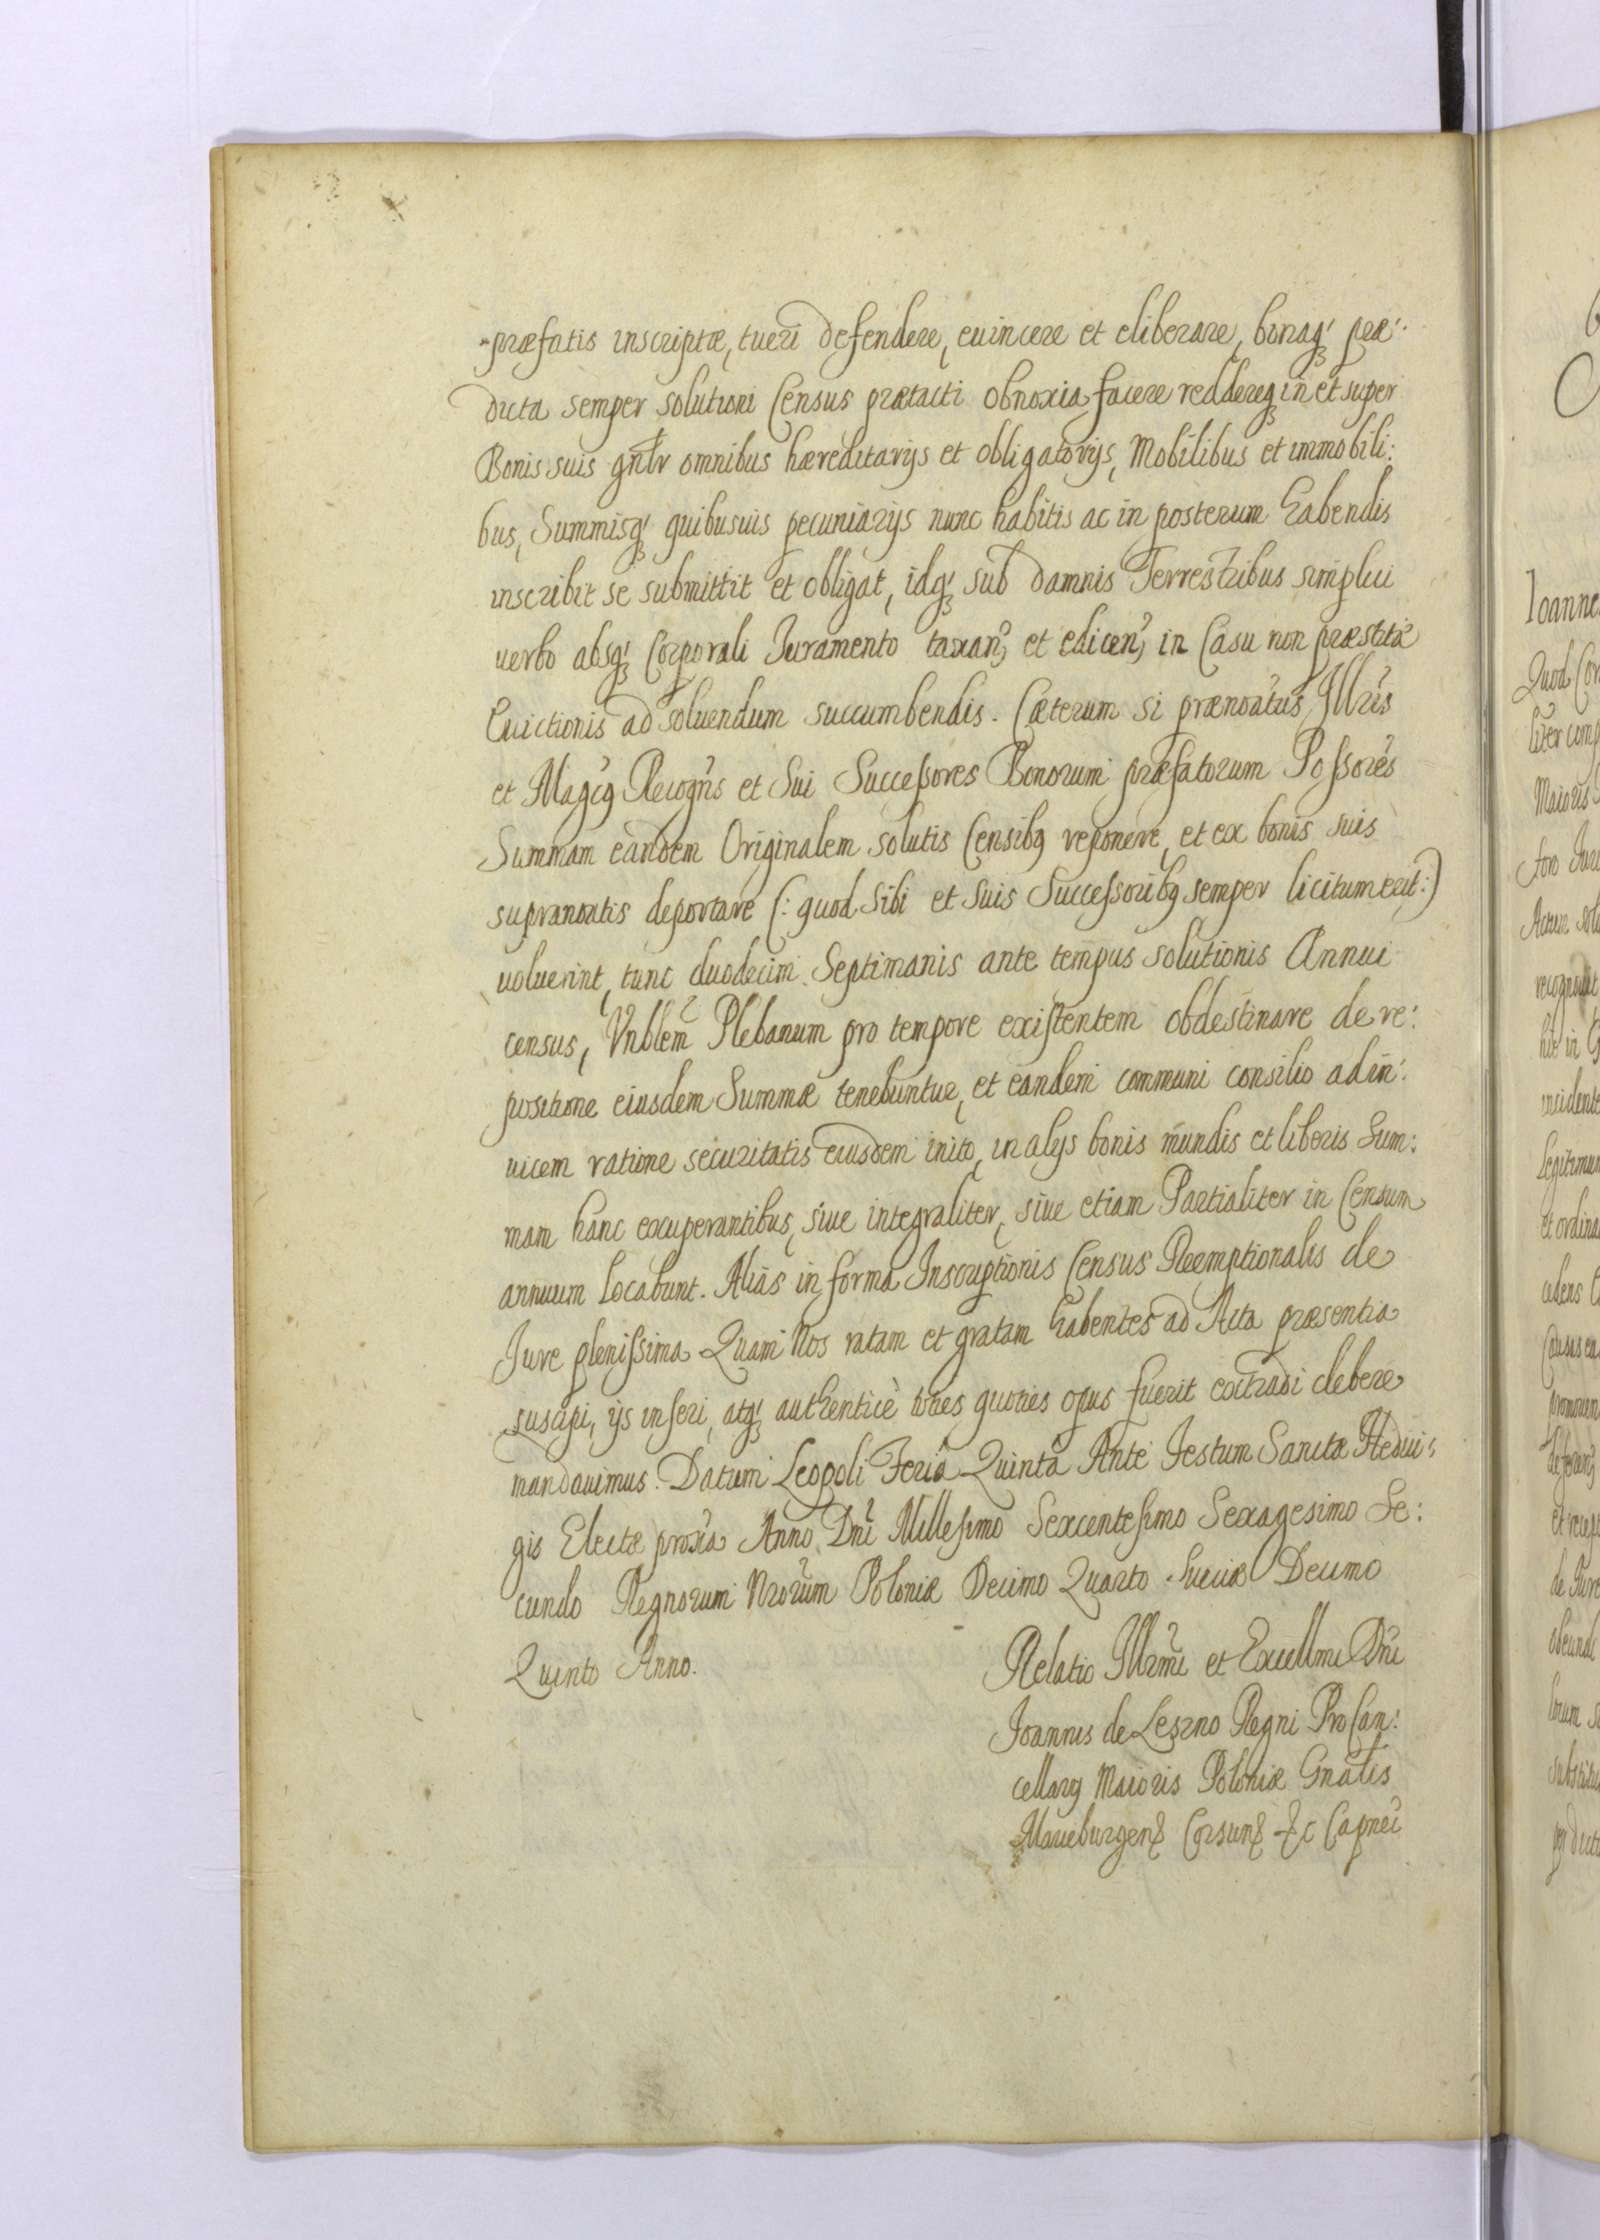 præfatis inscriptæ, tueri defendere, euincere et eliberare, bonaq; præ:
dicta semper solutioni Census prætacti obnoxia facere reddereq; in et super
Bonis suis gnlr omnibus hæreditarijs et obligatorijs, Mobilibus et immobili:
bus, Summisq; quibusuis pecuniarijs nunc habitis ac in posterum habendis
inscribit se submittit et obligat, idq; sub damnis Terrestribus simplici
uerbo absq; Corporali Iuramento taxan; et edicen; in Casu non præstitæ
Euictionis ad soluendum succumbendis. Cæterum si prænoatus Illris
et Magcg Recogns et Sui Successores Bonorum præfatorum Possores
Summam eandem Originalem solutis Censibg reponere, et ex bonis suis
supranoatis deportare (: quod sibi et suis Successoribg semper licitum erit :)
uoluerint, tunc duodecim Septimanis ante tempus solutionis Annui
census, Vnblem Plebanum pro tempore existentem obdestinare de re:
positione eiusdem Summæ tenebuntur, et eandem communi consilio ad in:
uicem ratione securitatis eiusdem inito, in alijs bonis mundis et liberis Sum:
mam hanc excuperantibus, siue integraliter, siue etiam Partialiter in Censum
annuum locabunt. Alias in forma Inscriptionis Census Reemptionalis de
Iure plenissima. Quam Nos ratam et gratam habentes ad Acta præsentia
suscipi, ijs inseri, atq; authenticè toties quoties opus fuerit extradi debere
mandauimus. Datum Leopoli Feria Quinta Ante Festum Sanctæ Hedui:
gis Electæ proxia Anno Dni Millesimo Sexcentesimo Sexagesimo Se:
cundo Regnorum Nrorum Poloniæ Decimo Quarto Sueciæ Decimo
Quinto Anno.
Relatio Illrmi et Excellmi Dni
Joannis de Leszno Regni ProCan:
cellarij Maioris Poloniæ Gnalis
Marieburgen; Corsun; &c Capnei